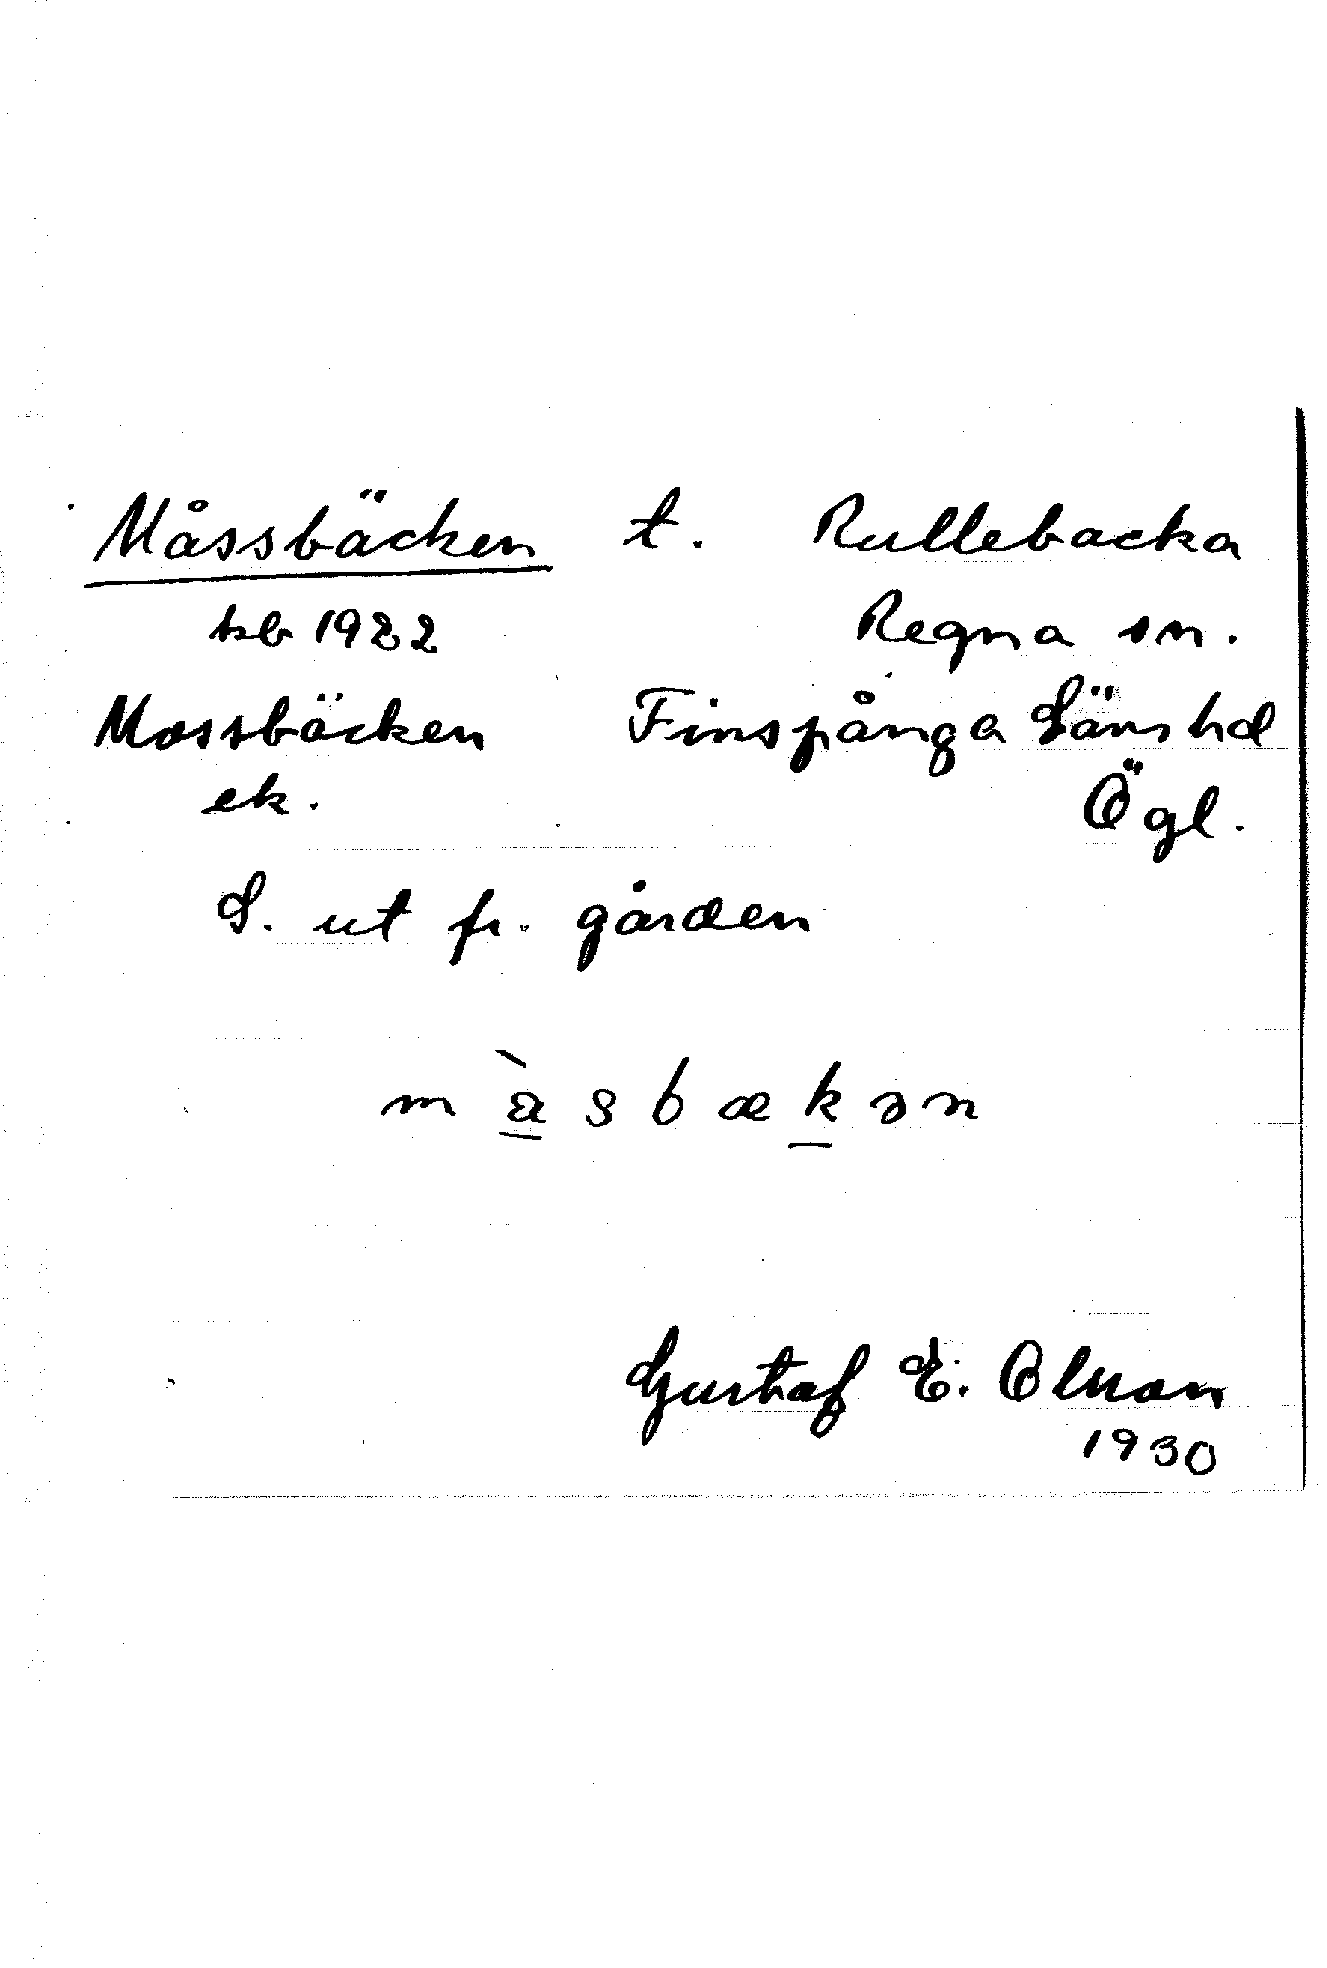 Måssbäcken t. Rullebacka
kb 1922 Regna sn.
Mossbäcken Finspånga Länshd
ek. Ögl.
S. ut fr. gården
m å̀ s b æ k ə n
Gustaf E. Olsson
1930